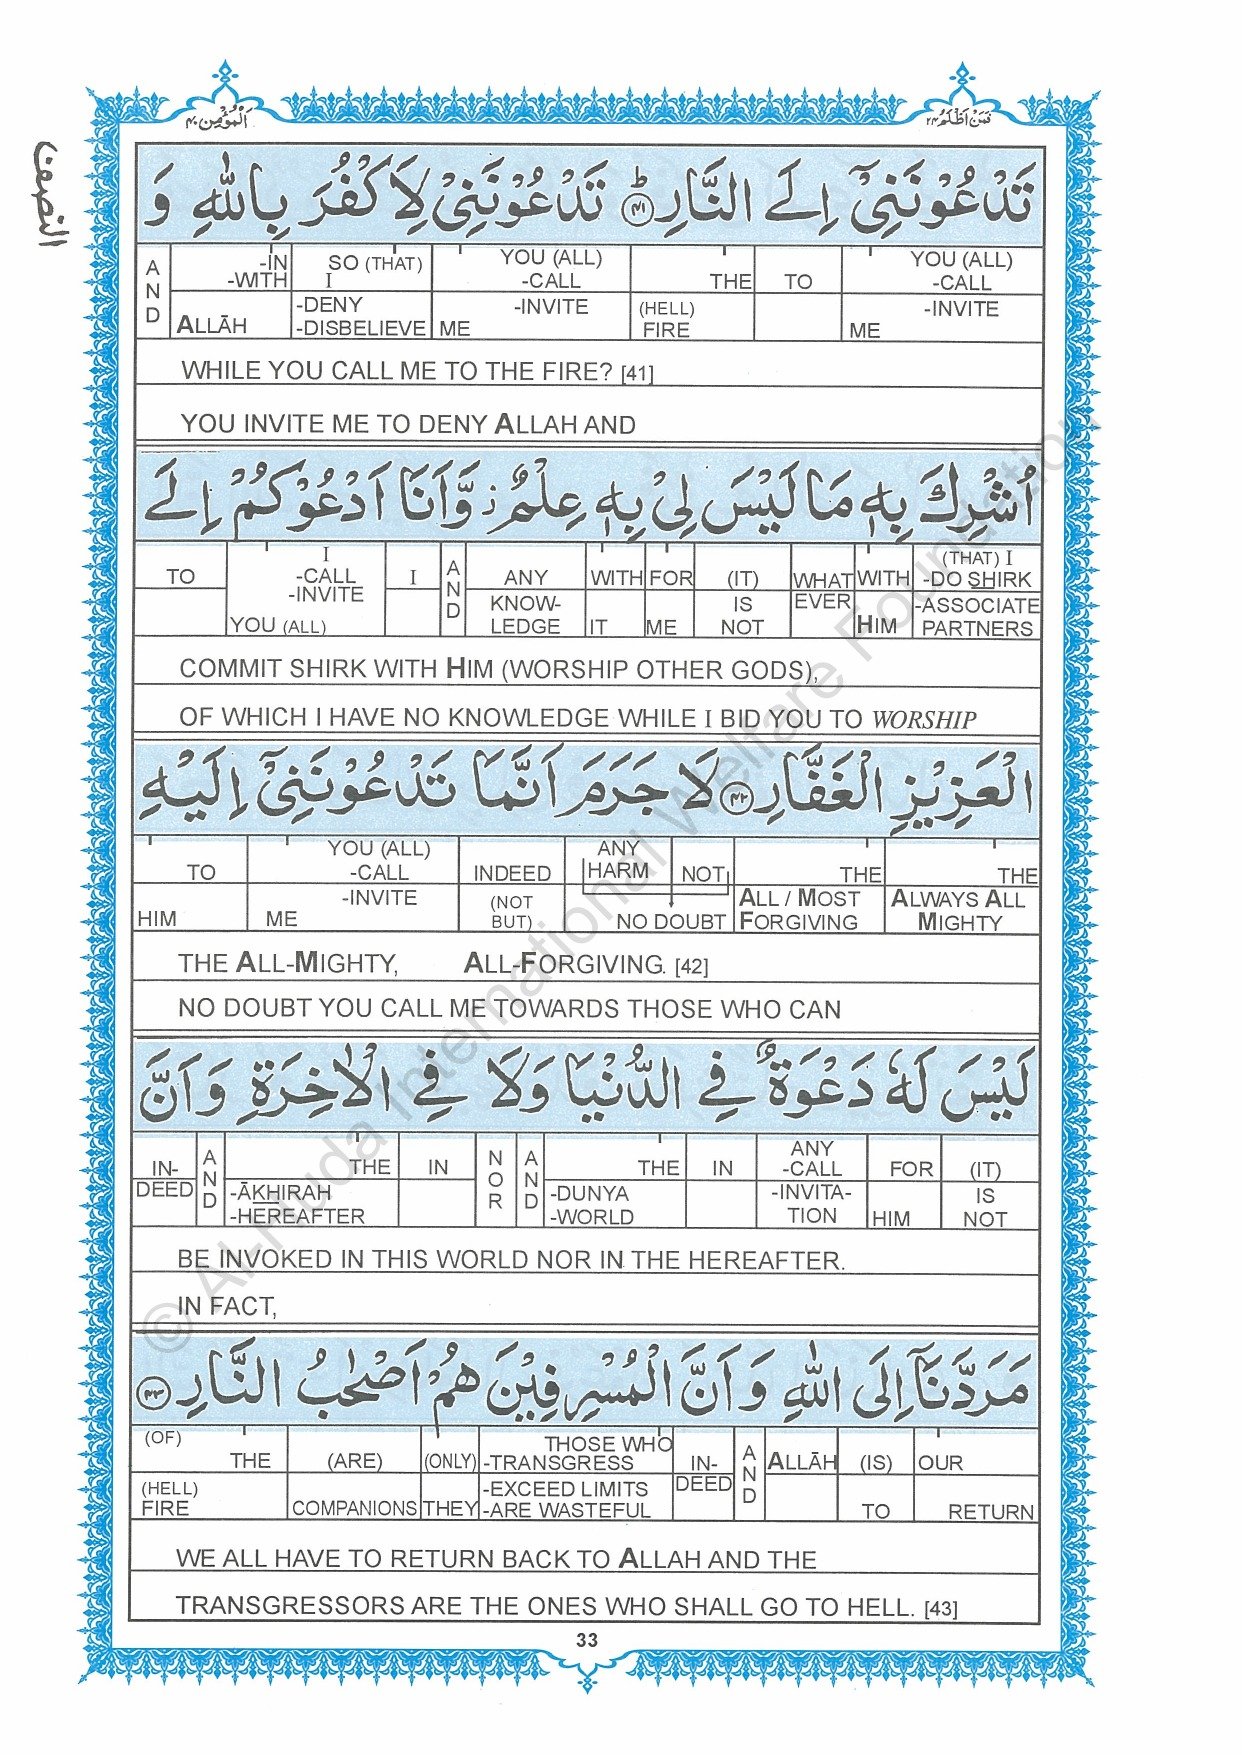 اَلْمُؤْمِن٤٠
فَمَنْ اَظْلَمُ٢٤
النصف
تَدْعُوْنَنِيْٓ اِلَى النَّارِ ؕ﴿۴۱﴾ تَدْعُوْنَنِيْ لِاَكْفُرَ بِاللّٰهِ وَ
AND
-IN -WITH ALLĀH
SO (THAT) I -DENY -DISBELIEVE
YOU (ALL) -CALL -INVITE ME
THE (HELL) FIRE
TO
YOU (ALL) -CALL -INVITE ME
WHILE YOU CALL ME TO THE FIRE? [41]
YOU INVITE ME TO DENY ALLAH AND
اُشْرِكَ بِهٖ مَا لَيْسَ لِيْ بِهٖ عِلْمٌ ز وَّاَنَا اَدْعُوْكُمْ اِلَى
TO
I -CALL -INVITE YOU (ALL)
I
AND
ANY KNOW-LEDGE
WITH IT
FOR ME
(IT) IS NOT
WHAT EVER
WITH HIM
(THAT) I -DO SHIRK -ASSOCIATE PARTNERS
COMMIT SHIRK WITH HIM (WORSHIP OTHER GODS),
OF WHICH I HAVE NO KNOWLEDGE WHILE I BID YOU TO WORSHIP
الْعَزِيْزِ الْغَفَّارِ ﴿۴۲﴾ لَا جَرَمَ اَنَّمَا تَدْعُوْنَنِيْٓ اِلَيْهِ
TO HIM
YOU (ALL) -CALL -INVITE ME
INDEED (NOT BUT)
ANY HARM NOT NO DOUBT
THE ALL / MOST FORGIVING
THE ALWAYS ALL MIGHTY
THE ALL-MIGHTY, ALL-FORGIVING. [42]
NO DOUBT YOU CALL ME TOWARDS THOSE WHO CAN
لَيْسَ لَهٗ دَعْوَةٌ فِي الدُّنْيَا وَلَا فِي الْاٰخِرَةِ وَاَنَّ
IN-DEED
AND
THE -ĀKHIRAH -HEREAFTER
IN
NOR
AND
THE -DUNYA -WORLD
IN
ANY -CALL -INVITA-TION
FOR HIM
(IT) IS NOT
BE INVOKED IN THIS WORLD NOR IN THE HEREAFTER.
IN FACT,
مَرَدَّنَآ اِلَى اللّٰهِ وَاَنَّ الْمُسْرِفِيْنَ هُمْ اَصْحٰبُ النَّارِ ﴿۴۳﴾
(OF) THE (HELL) FIRE
(ARE) COMPANIONS
(ONLY) THEY
THOSE WHO -TRANSGRESS -EXCEED LIMITS -ARE WASTEFUL
IN-DEED
AND
ALLĀH
(IS) TO
OUR RETURN
WE ALL HAVE TO RETURN BACK TO ALLAH AND THE
TRANSGRESSORS ARE THE ONES WHO SHALL GO TO HELL. [43]
33
© Al-Huda International Welfare Foundation